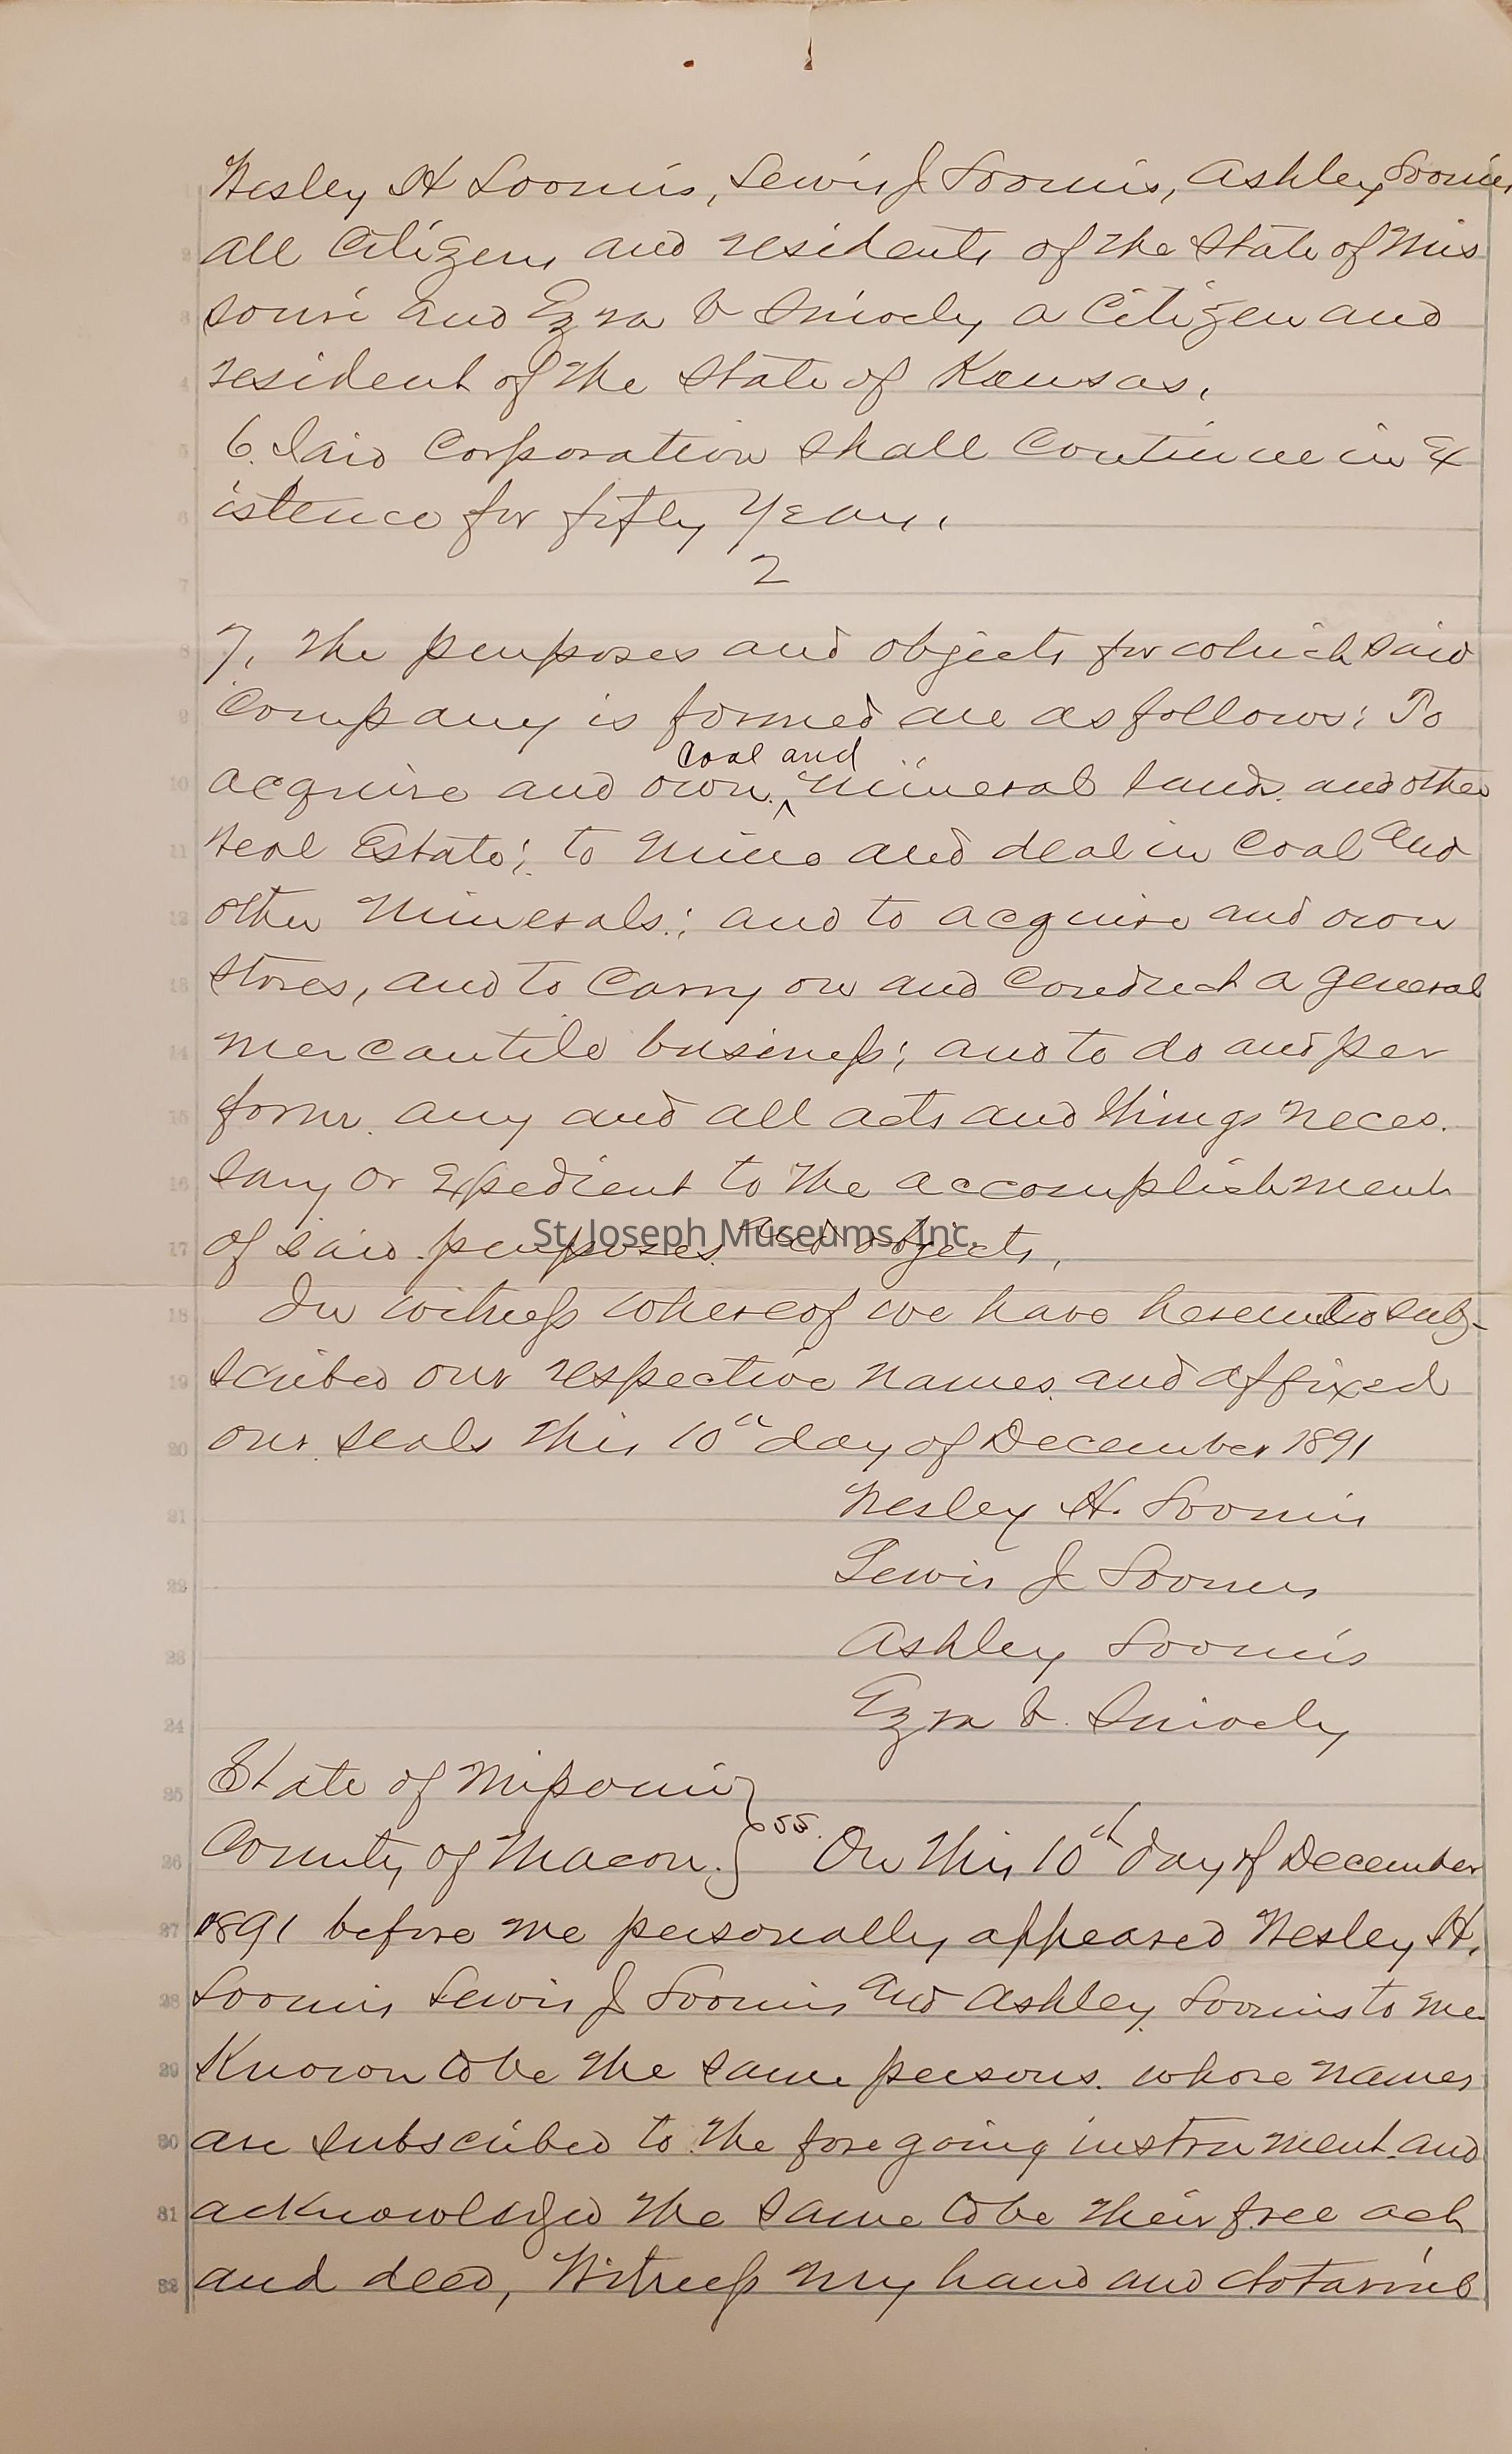 Wesley H Loomis, Lewis J Loomis, Ashley Loomis
all Citizens and residents of the State of Mis
souri and Ezra b Snively a Citizen and
resident of the State of Kansas.
6. Said Corporation shall Continue in Ex
istence for fifty Years.
2
7. The purposes and objects for which said
Company is formed are as follows: To
coal and
acquire and own ^ mineral lands and other
Real Estate; to mine and deal in Coal and
other minerals; and to acquire and own
stores, and to Carry on and Conduct a general
mercantile business; and to do and per
form any and all acts and things neces.
sary or Expedient to the accomplishment
of said purposes and objects.
St. Joseph Museums, Inc.
In witness whereof we have hereunto sub-
scribed our respective names and affixed
our seals this 10th day of December 1891
Wesley H. Loomis
Lewis J Loomis
Ashley Loomis
Ezra b. Snively
State of Missouri }
County of Macon. } ss. On this 10th day of December
1891 before me personally appeared Wesley H.
Loomis Lewis J Loomis and Ashley Loomis to me
Known to be the same persons whose names
are subscribed to the foregoing instrument and
acknowledged the same to be their free act
and deed, Witness my hand and Notarial
1
2
3
4
5
6
7
8
9
10
11
12
13
14
15
16
17
18
19
20
21
22
23
24
25
26
27
28
29
30
31
32